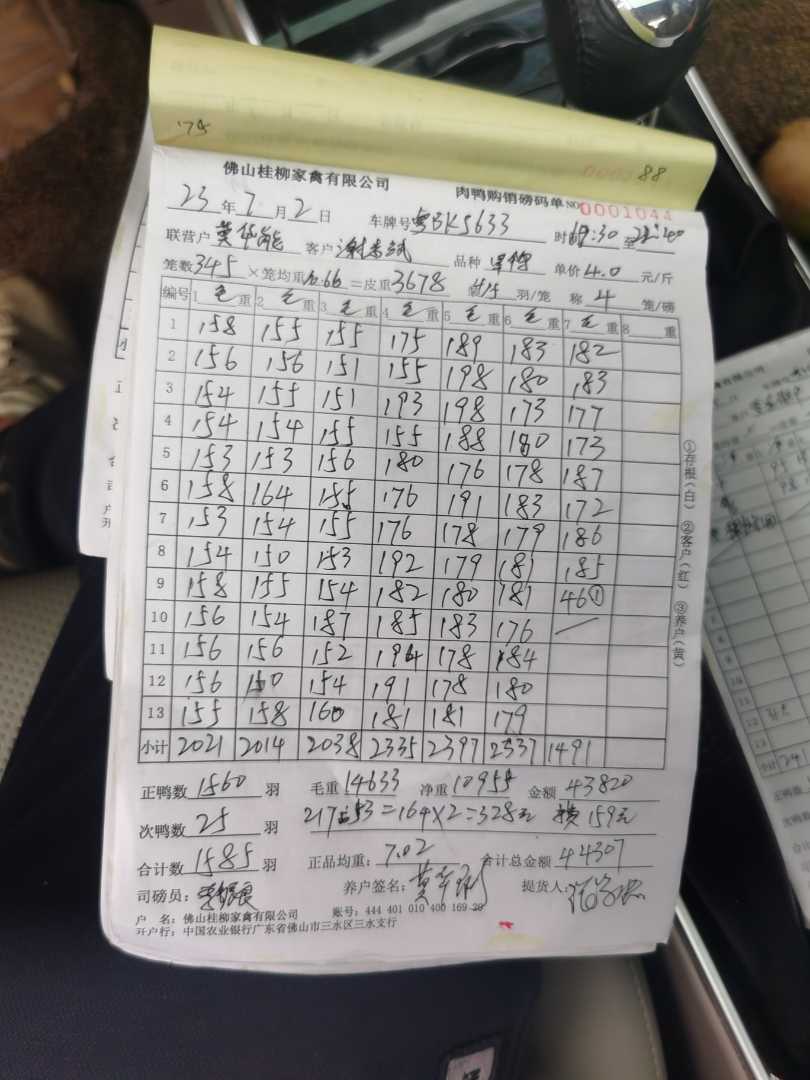 175
0001088
佛山桂柳家禽有限公司 肉鸭购销磅码单 NO 0001044
23年7月2日 车牌号 粤BK5633 时 19:30 至
联营户 莫华能 客户 品种 单价 4.0 元/斤
笼数 345 ×笼均重 10.66 =皮重 3678 装 羽/笼 称 4 笼/磅
编号 1 毛重 2 毛重 3 毛重 4 毛重 5 毛重 6 毛重 7 毛重 8 重
1 158 155 155 175 189 183 182
2 156 156 151 155 198 180 183
3 154 155 151 193 198 173 177
4 154 154 155 155 188 180 173
5 153 153 156 180 176 178 187
6 158 164 155 176 191 183 172
7 153 154 155 176 178 179 186
8 154 150 153 192 179 181 185
9 158 155 154 182 180 181 46①
10 156 154 187 185 183 176
11 156 156 152 194 178 184
12 156 150 154 191 178 180
13 155 158 160 181 181 179
小计 2021 2014 2038 2335 2397 2337 1491
正鸭数 1560 羽 毛重 14633 净重 10955 金额 43820
次鸭数 25 羽 217-53=164×2=328元 159元
合计数 1585 羽 正品均重: 7.02 合计总金额 44307
司磅员: 养户签名: 提货人:
户 名: 佛山桂柳家禽有限公司 账号: 444 401 010 400 169 20
开户行: 中国农业银行广东省佛山市三水区三水支行
①存根(白) ②客户(红) ③养户(黄)